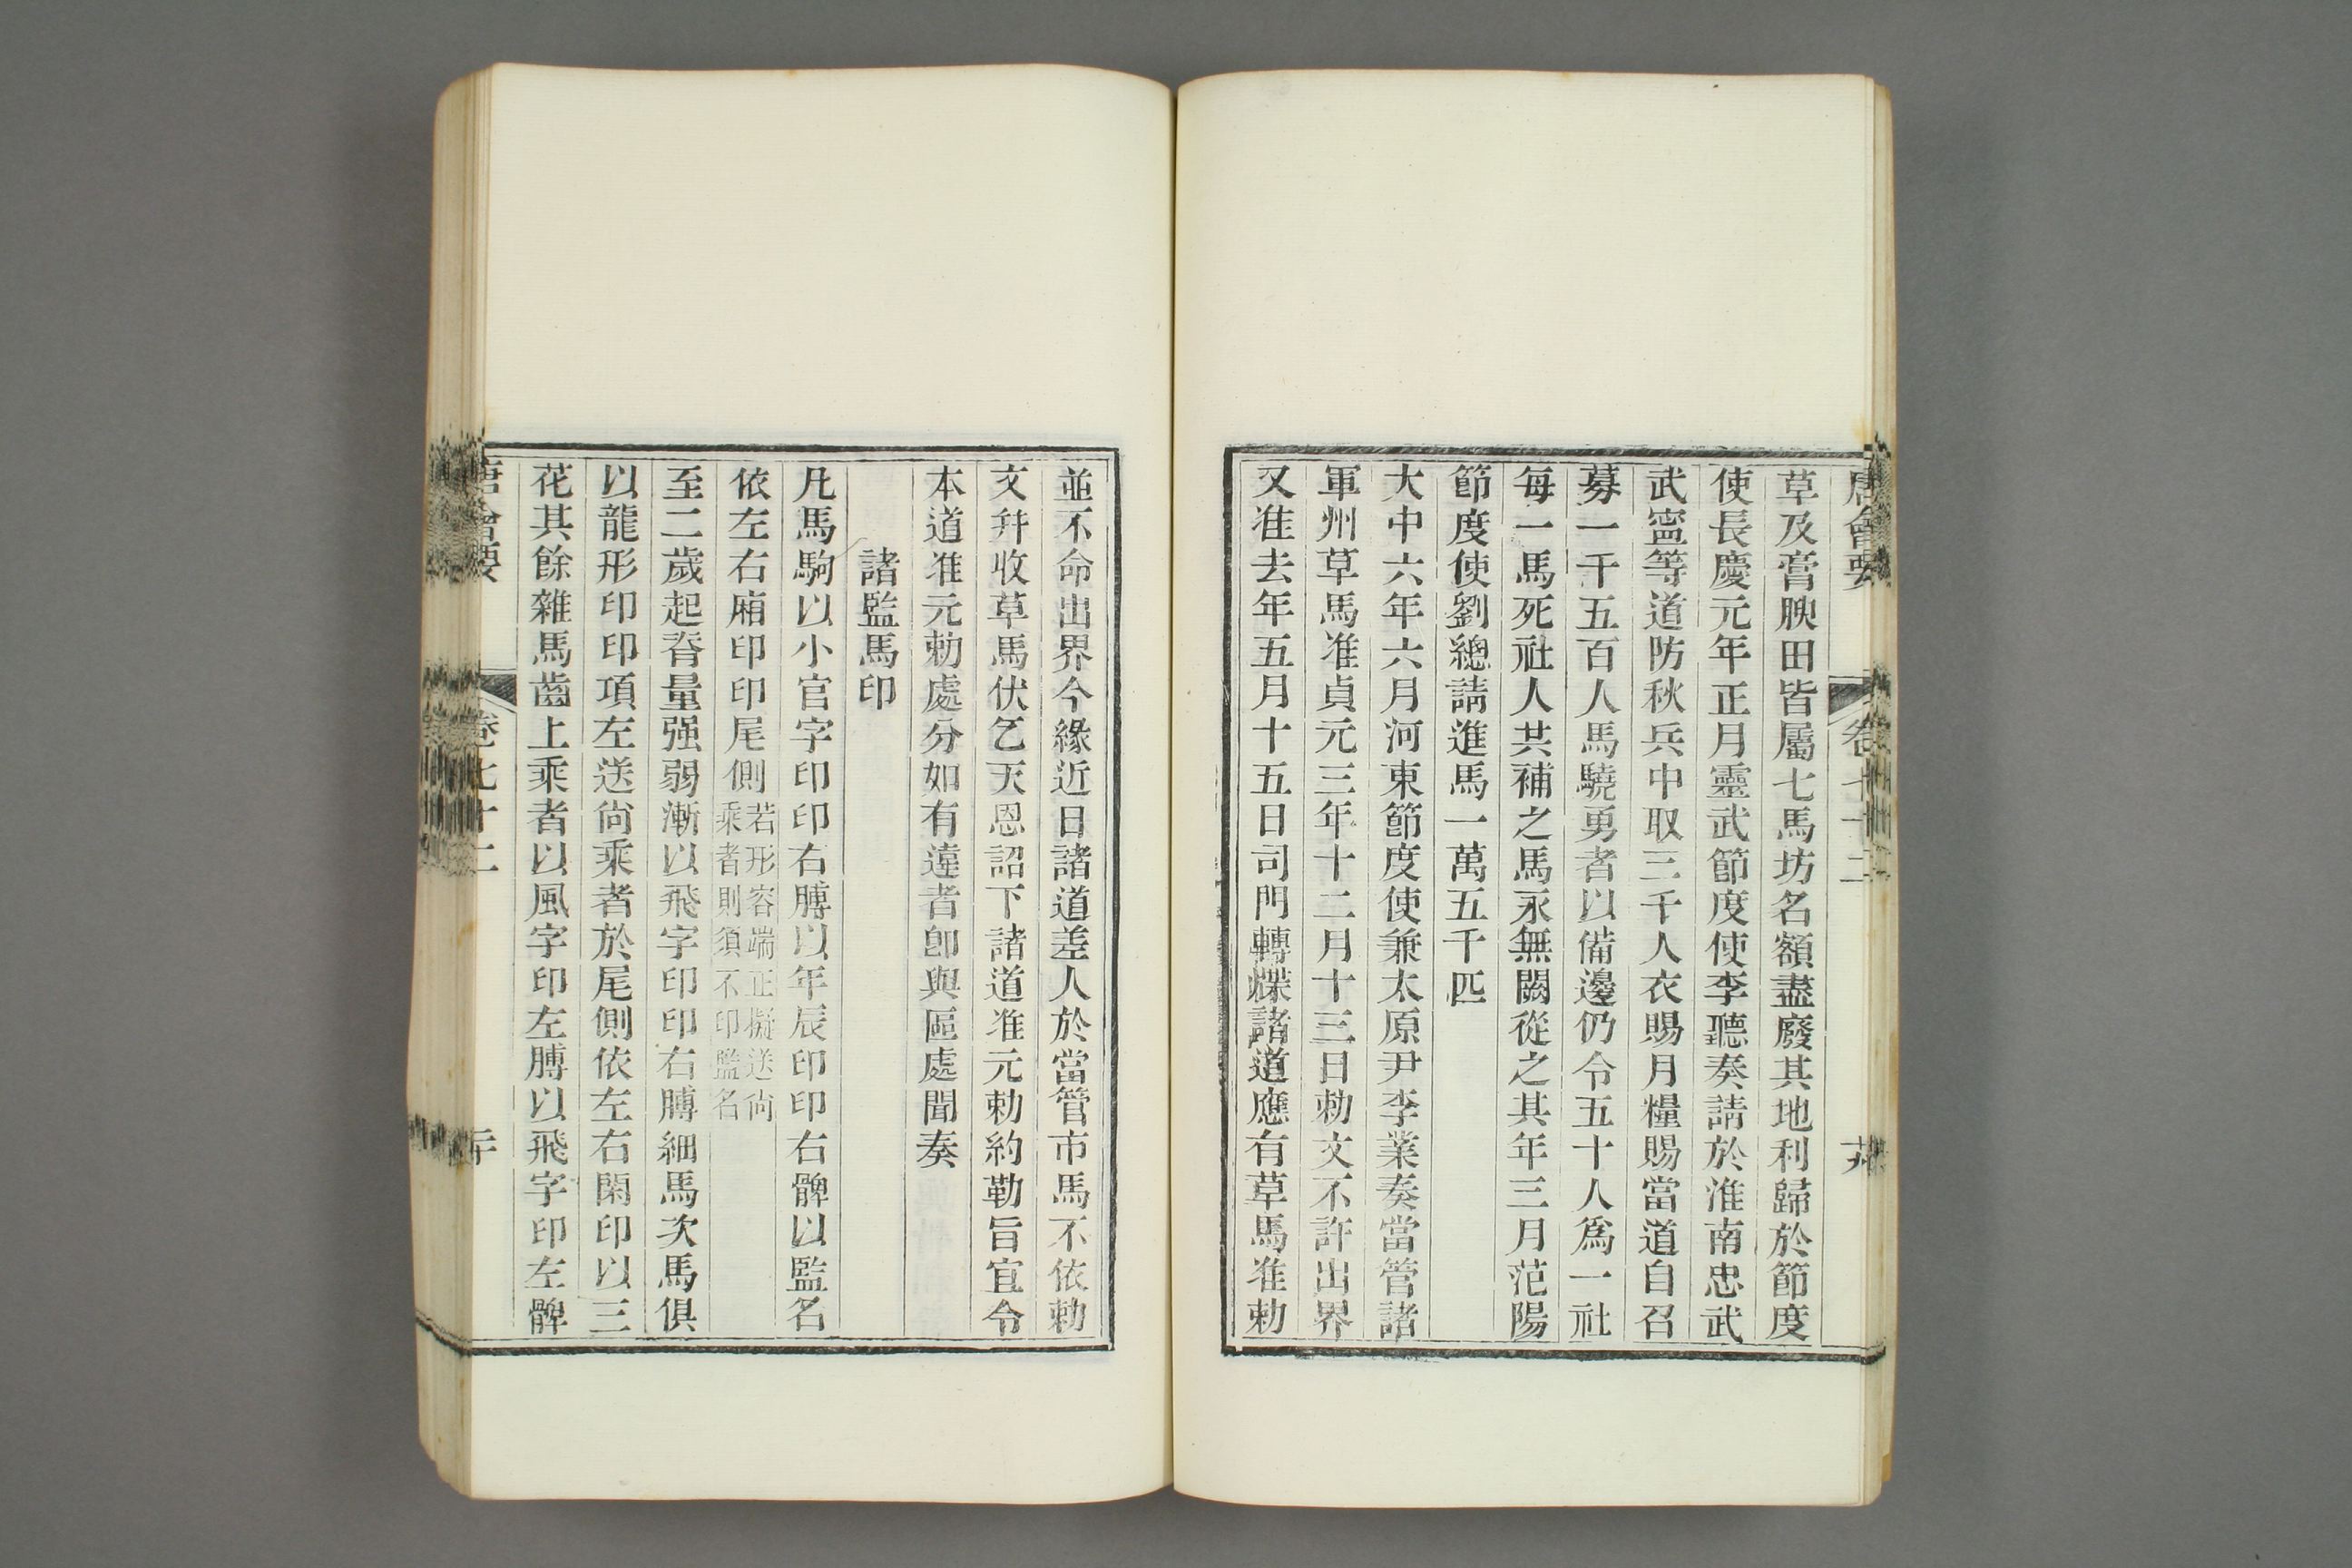 唐會要 卷七十二
草及膏腴田皆屬七馬坊名額盡廢其地利歸於節度
使長慶元年正月靈武節度使李聽奏請於淮南忠武
武寧等道防秋兵中取三千人衣賜月糧賜當道自召
募一千五百人馬驍勇者以備邊仍令五十人爲一社
每一馬死社人共補之馬永無闕從之其年三月范陽
節度使劉總請進馬一萬五千匹
大中六年六月河東節度使兼太原尹李業奏當管諸
軍州草馬准貞元三年十二月十三日勅文不許出界
又准去年五月十五日司門轉牒諸道應有草馬准勅
並不命出界今緣近日諸道差人於當管市馬不依勅
文幷收草馬伏乞天恩詔下諸道准元勅約勒旨宜令
本道准元勅處分如有違者卽與區處聞奏
諸監馬印
凡馬駒以小官字印印右膊以年辰印印右髀以監名
依左右廂印印尾側若形容端正擬送尙乘者則須不印監名
至二歲起脊量强弱漸以飛字印印右膊細馬次馬俱
以龍形印印項左送尙乘者於尾側依左右閑印以三
花其餘雜馬齒上乘者以風字印左膊以飛字印左髀
唐會要 卷七十二 二十